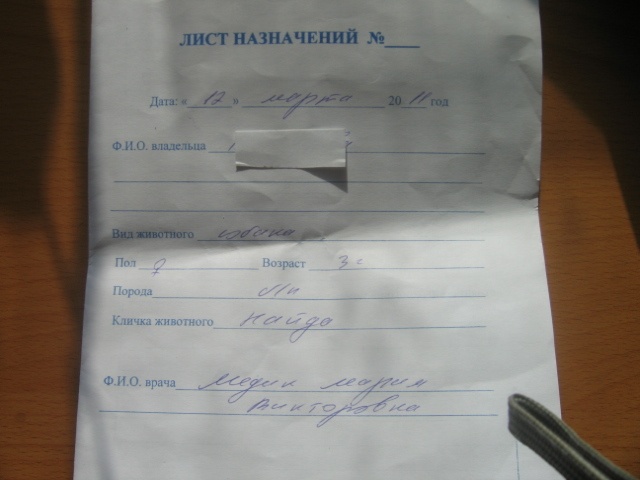 ЛИСТ НАЗНАЧЕНИЙ №____
Дата: « 12 » марта 20 11 год
Ф.И.О. владельца
Вид животного собака
Пол ♀ Возраст 3 г
Порода м/п
Кличка животного Найда
Ф.И.О. врача Медик Мария
Викторовна